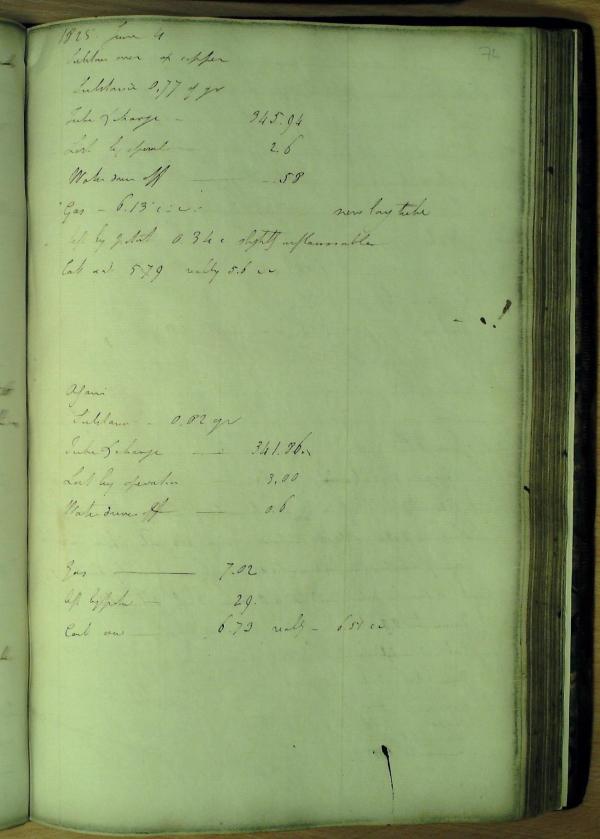 72
1825 June 4
Sublim over ox copper
Substance 0.77 of gr
Tube & charge - 345.94
Lost by operat 2.6
Water driven off - .58
Gas - 6.13 c.i. new long tube
left by potash 0.34 c slightly inflammable
Carb acid 5.79 really 5.6
Again
Substance - 0.82 gr
Tube & charge - 341.86
Lost by operation 3.00
Water driven off - 0.6
Gas - 7.02
left by potash - 29.
Carb 6.73 really -